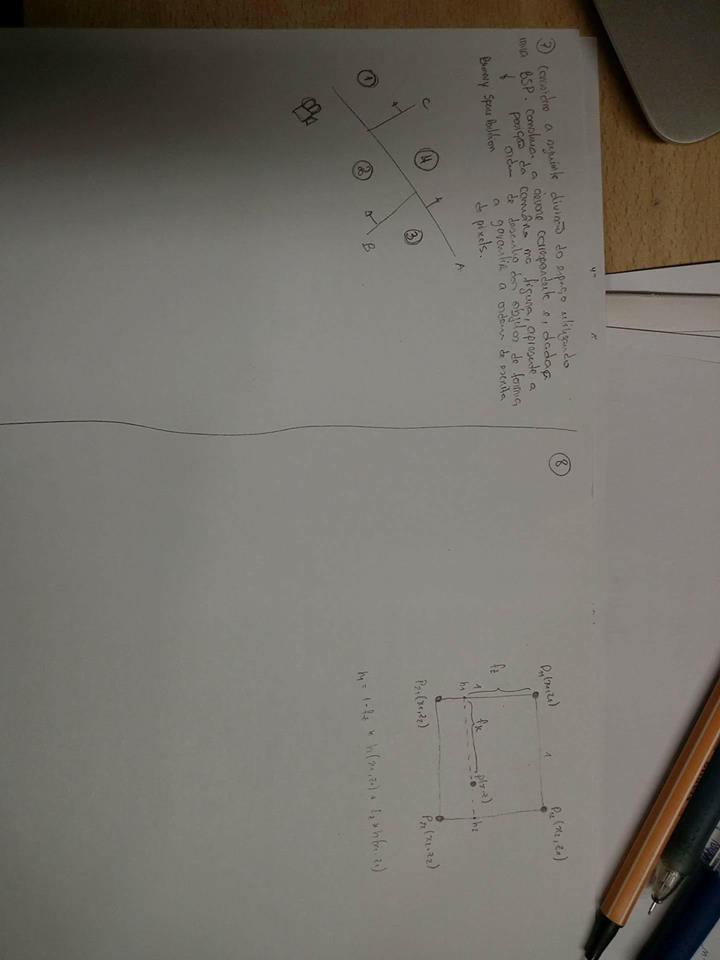 7 Considere a seguinte divisão do espaço utilizando
uma BSP. Construa, a árvore correspondente e, dada a
posição da câmara na figura, apresente a
ordem de desenho dos objetos de forma
a garantir a ordem de escrita
de pixels.
Binary Space Partition
A
C
4
3
1
2
B
8
P11(x1,z1)
1
P12(x2,z1)
fz
1
fx
p(x,z)
h1
h2
P21(x1,z2)
P22(x2,z2)
h1 = 1-fz * h(x1,z1) + fz * h(x1,z1)